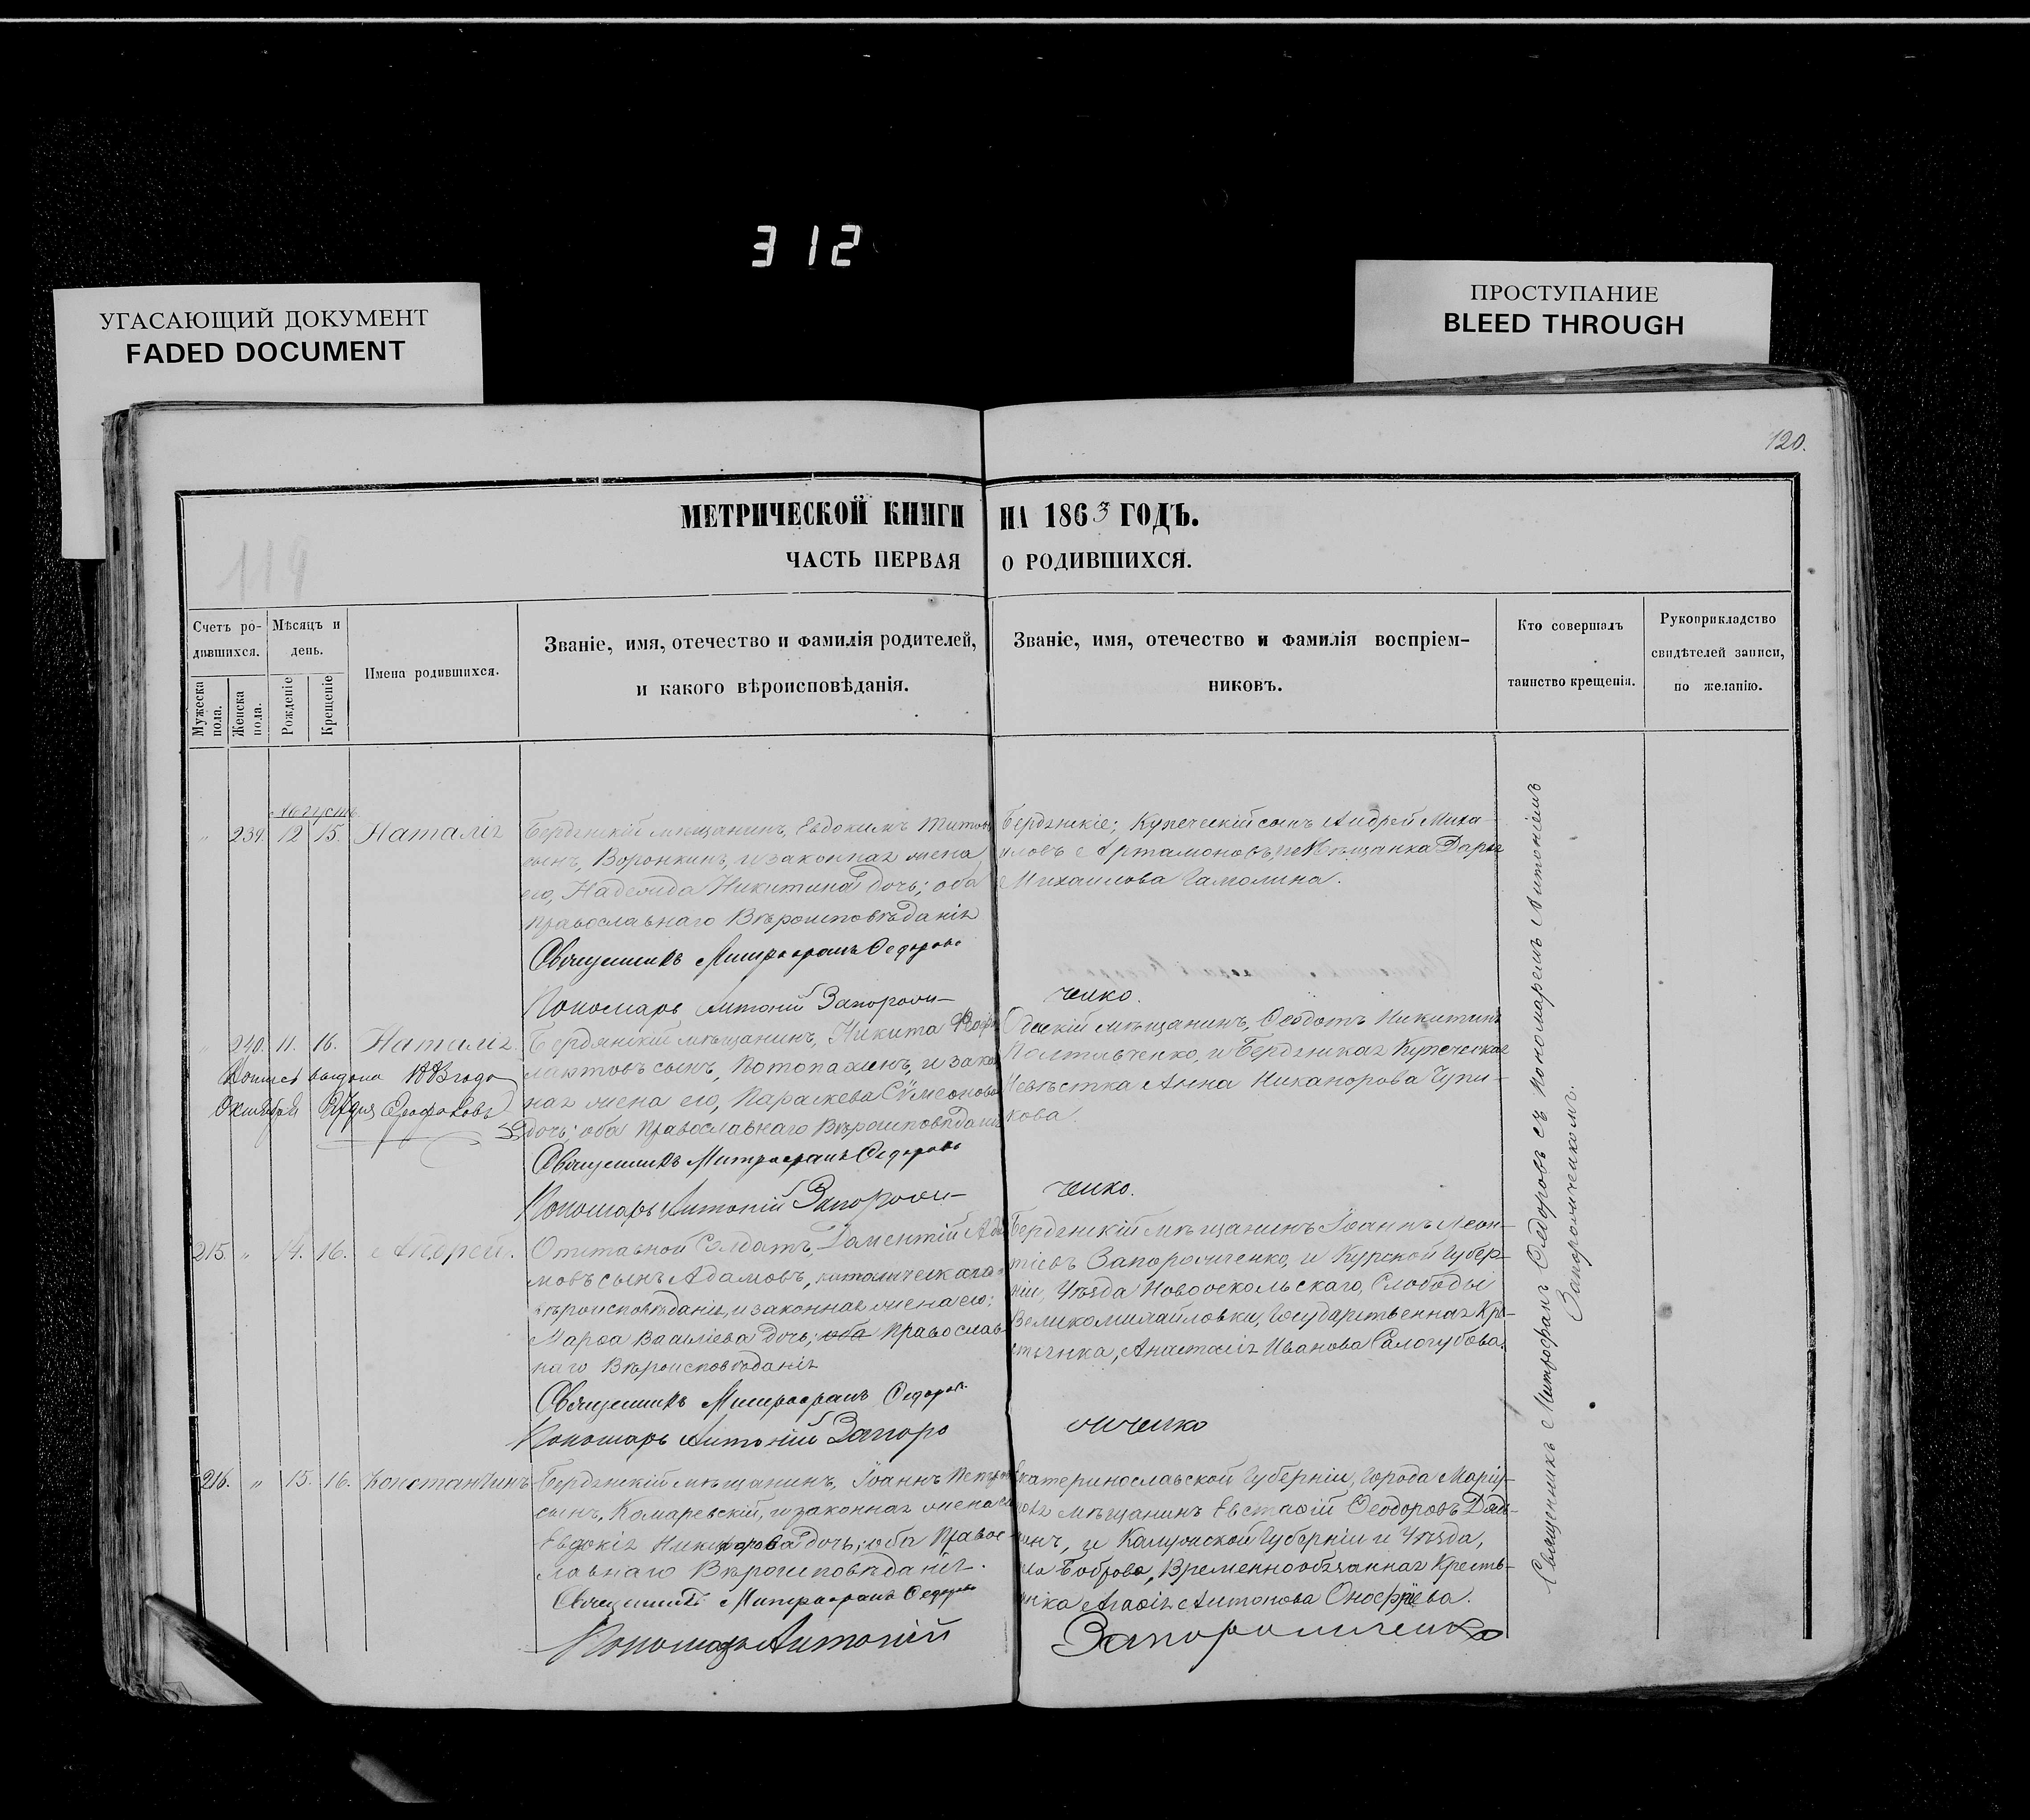 312
УГАСАЮЩИЙ ДОКУМЕНТ
FADED DOCUMENT
ПРОСТУПАНИЕ
BLEED THROUGH
120.
119
МЕТРИЧЕСКОЙ КНИГИ НА 1863 ГОДЪ.
ЧАСТЬ ПЕРВАЯ О РОДИВШИХСЯ.
Счетъ родившихся.
Мужеска пола.
Женска пола.
Мѣсяцъ и день.
Рожденіе
Крещеніе
Имена родившихся.
Званіе, имя, отечество и фамилія родителей,
и какого вѣроисповѣданія.
Званіе, имя, отечество и фамилія воспріем-
никовъ.
Кто совершалъ
таинство крещенія.
Рукоприкладство
свидѣтелей записи,
по желанію.
Августъ
" 239. 12 15. Наталія
Бердянскій мѣщанинъ, Евдокимъ Титовъ
сынъ, Воронкинъ, и законная жена
его, Надежда Никитина дочь; оба
Православнаго Вѣроисповѣданія
Священникъ Митрофанъ Федоровъ
Пономарь Антоній Запорож-
Бердянскіе; Купеческій сынъ Андрей Миха-
иловъ Артамоновъ, и Мѣщанка Дарья
Михаилова Гамолина.
ченко.
" 240. 11. 16. Наталія.
Октября
Бердянскій мѣщанинъ, Никита
сынъ, Потопахинъ, и закон
ная жена его, Параскева Сѵмеонова
дочь; оба Православнаго Вѣроисповѣданія
Священникъ Митрофанъ Федоровъ
Пономарь Антоній Запорож-
Одескій мѣщанинъ, Ѳеодотъ Никитинъ
Полтавченко, и Бердянская Купеческая
Невѣстка Анна Никанорова Чупи-
кова.
ченко.
215. " 14. 16. Андрей.
Отставной Солдатъ, Даментій Ада
мовъ сынъ Адамовъ, католическаго
вѣроисповѣданія, и законная жена его;
Марѳа Василіева дочь; оба Православ-
наго Вѣроисповѣданія
Священникъ Митрофанъ Федоровъ
Пономарь Антоній Запоро
Бердянскій мѣщанинъ Іоаннъ Леон-
тіевъ Запорожченко, и Курской Губер-
ніи, Уѣзда Новооскольскаго, Слободы
Великомихайловки, Государственная Кре-
стьянка, Анастасія Иванова Салогубова.
жченко
216. " 15. 16. Константинъ
Бердянскій мѣщанинъ, Іоаннъ Петровъ
сынъ, Комаревскій, и законная жена его
Евдокія Никифорова дочь; оба Правос-
лавнаго Вѣроисповѣданія.
Священникъ Митрофанъ Федоровъ
Пономарь Антоній
Екатеринославской Губерніи, Города Маріу-
поля мѣщанинъ Евстаѳій Ѳеодоровъ
и Калужской Губерніи и Уѣзда,
Боброва, Временнообязанная Кресть-
янка Агаѳія Антонова Онофріева.
Запорожченко
Священникъ Митрофанъ Федоровъ съ Пономаремъ Антоніемъ
Запорожченкомъ.